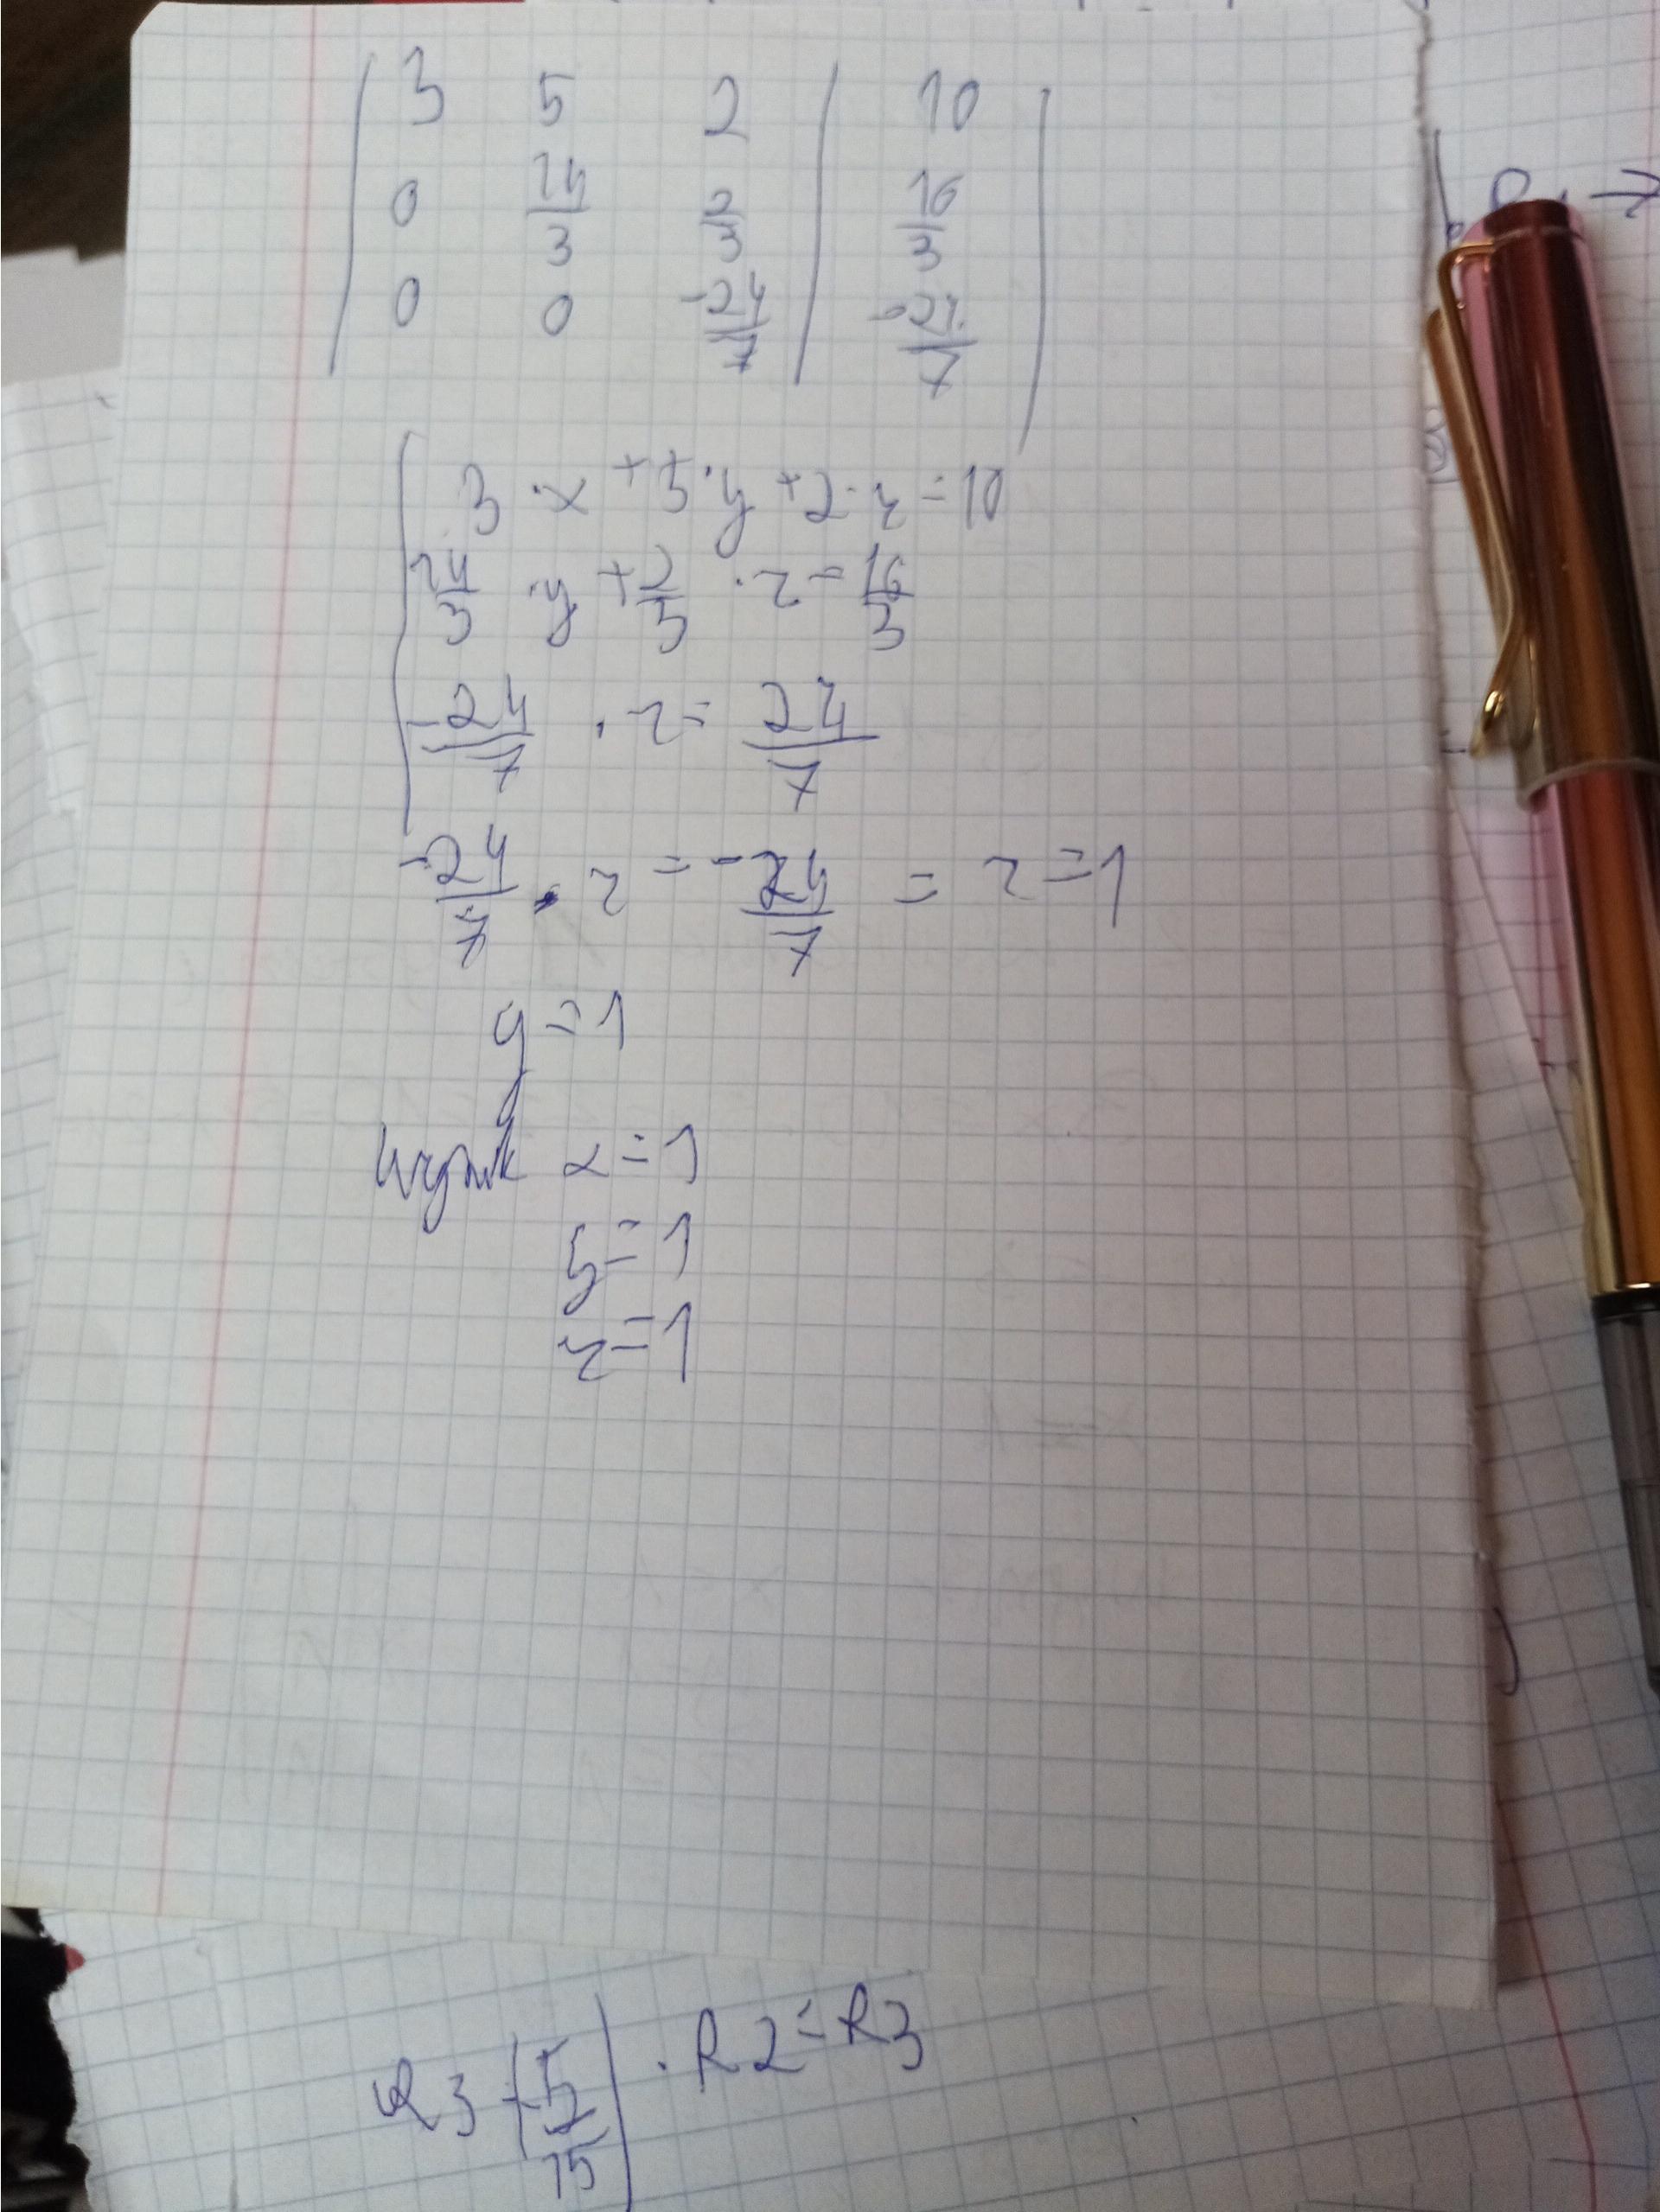 | 3 5 2 | 10 |
0 24/3 2/3 | 16/3
0 0 -24/7 | -24/7
3 · x + 5 · y + 2 · z = 10
24/3 · y + 2/3 · z = 16/3
-24/7 · z = 24/7
-24/7 · z = -24/7 = z = 1
y = 1
Wynik x = 1
y = 1
z = 1
R3 - (5/15) · R2 = R3